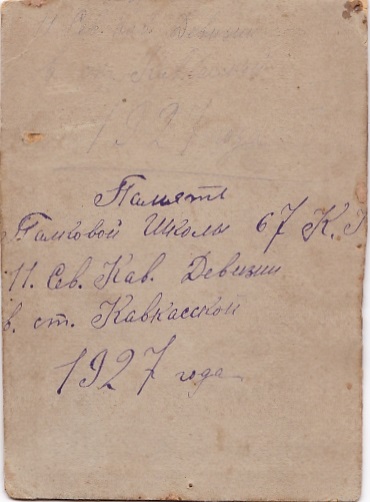 Сев. Кав. Девизии
1927
Память
Полковой Школы 67 К. П
11. Сев. Кав. Девизии
в. ст. Кавказской
1927 года